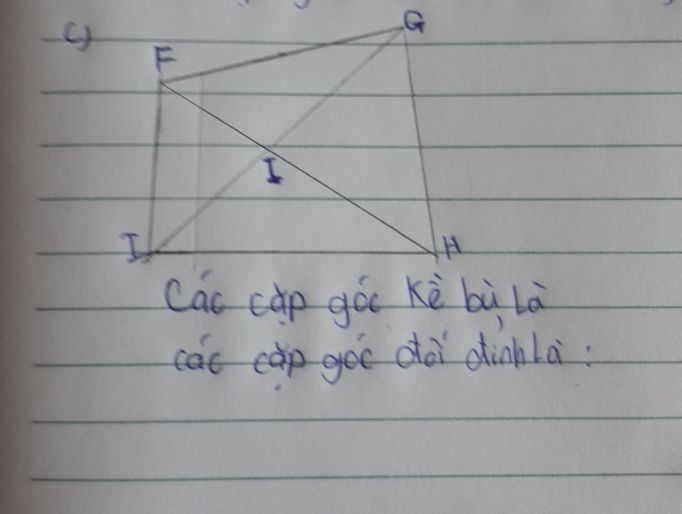 c)
G
F
I
I
H
Các cặp góc Kề bù là
các cặp góc đối đỉnh là :